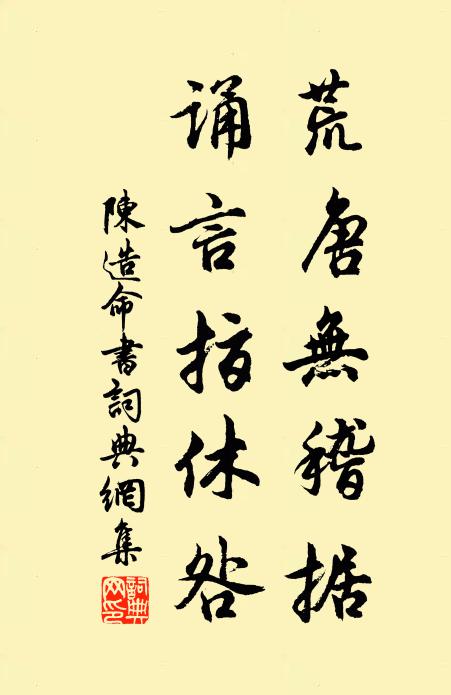 荒唐無稽据
誦言指休咎
陳造命書詞典網集
詞典网印